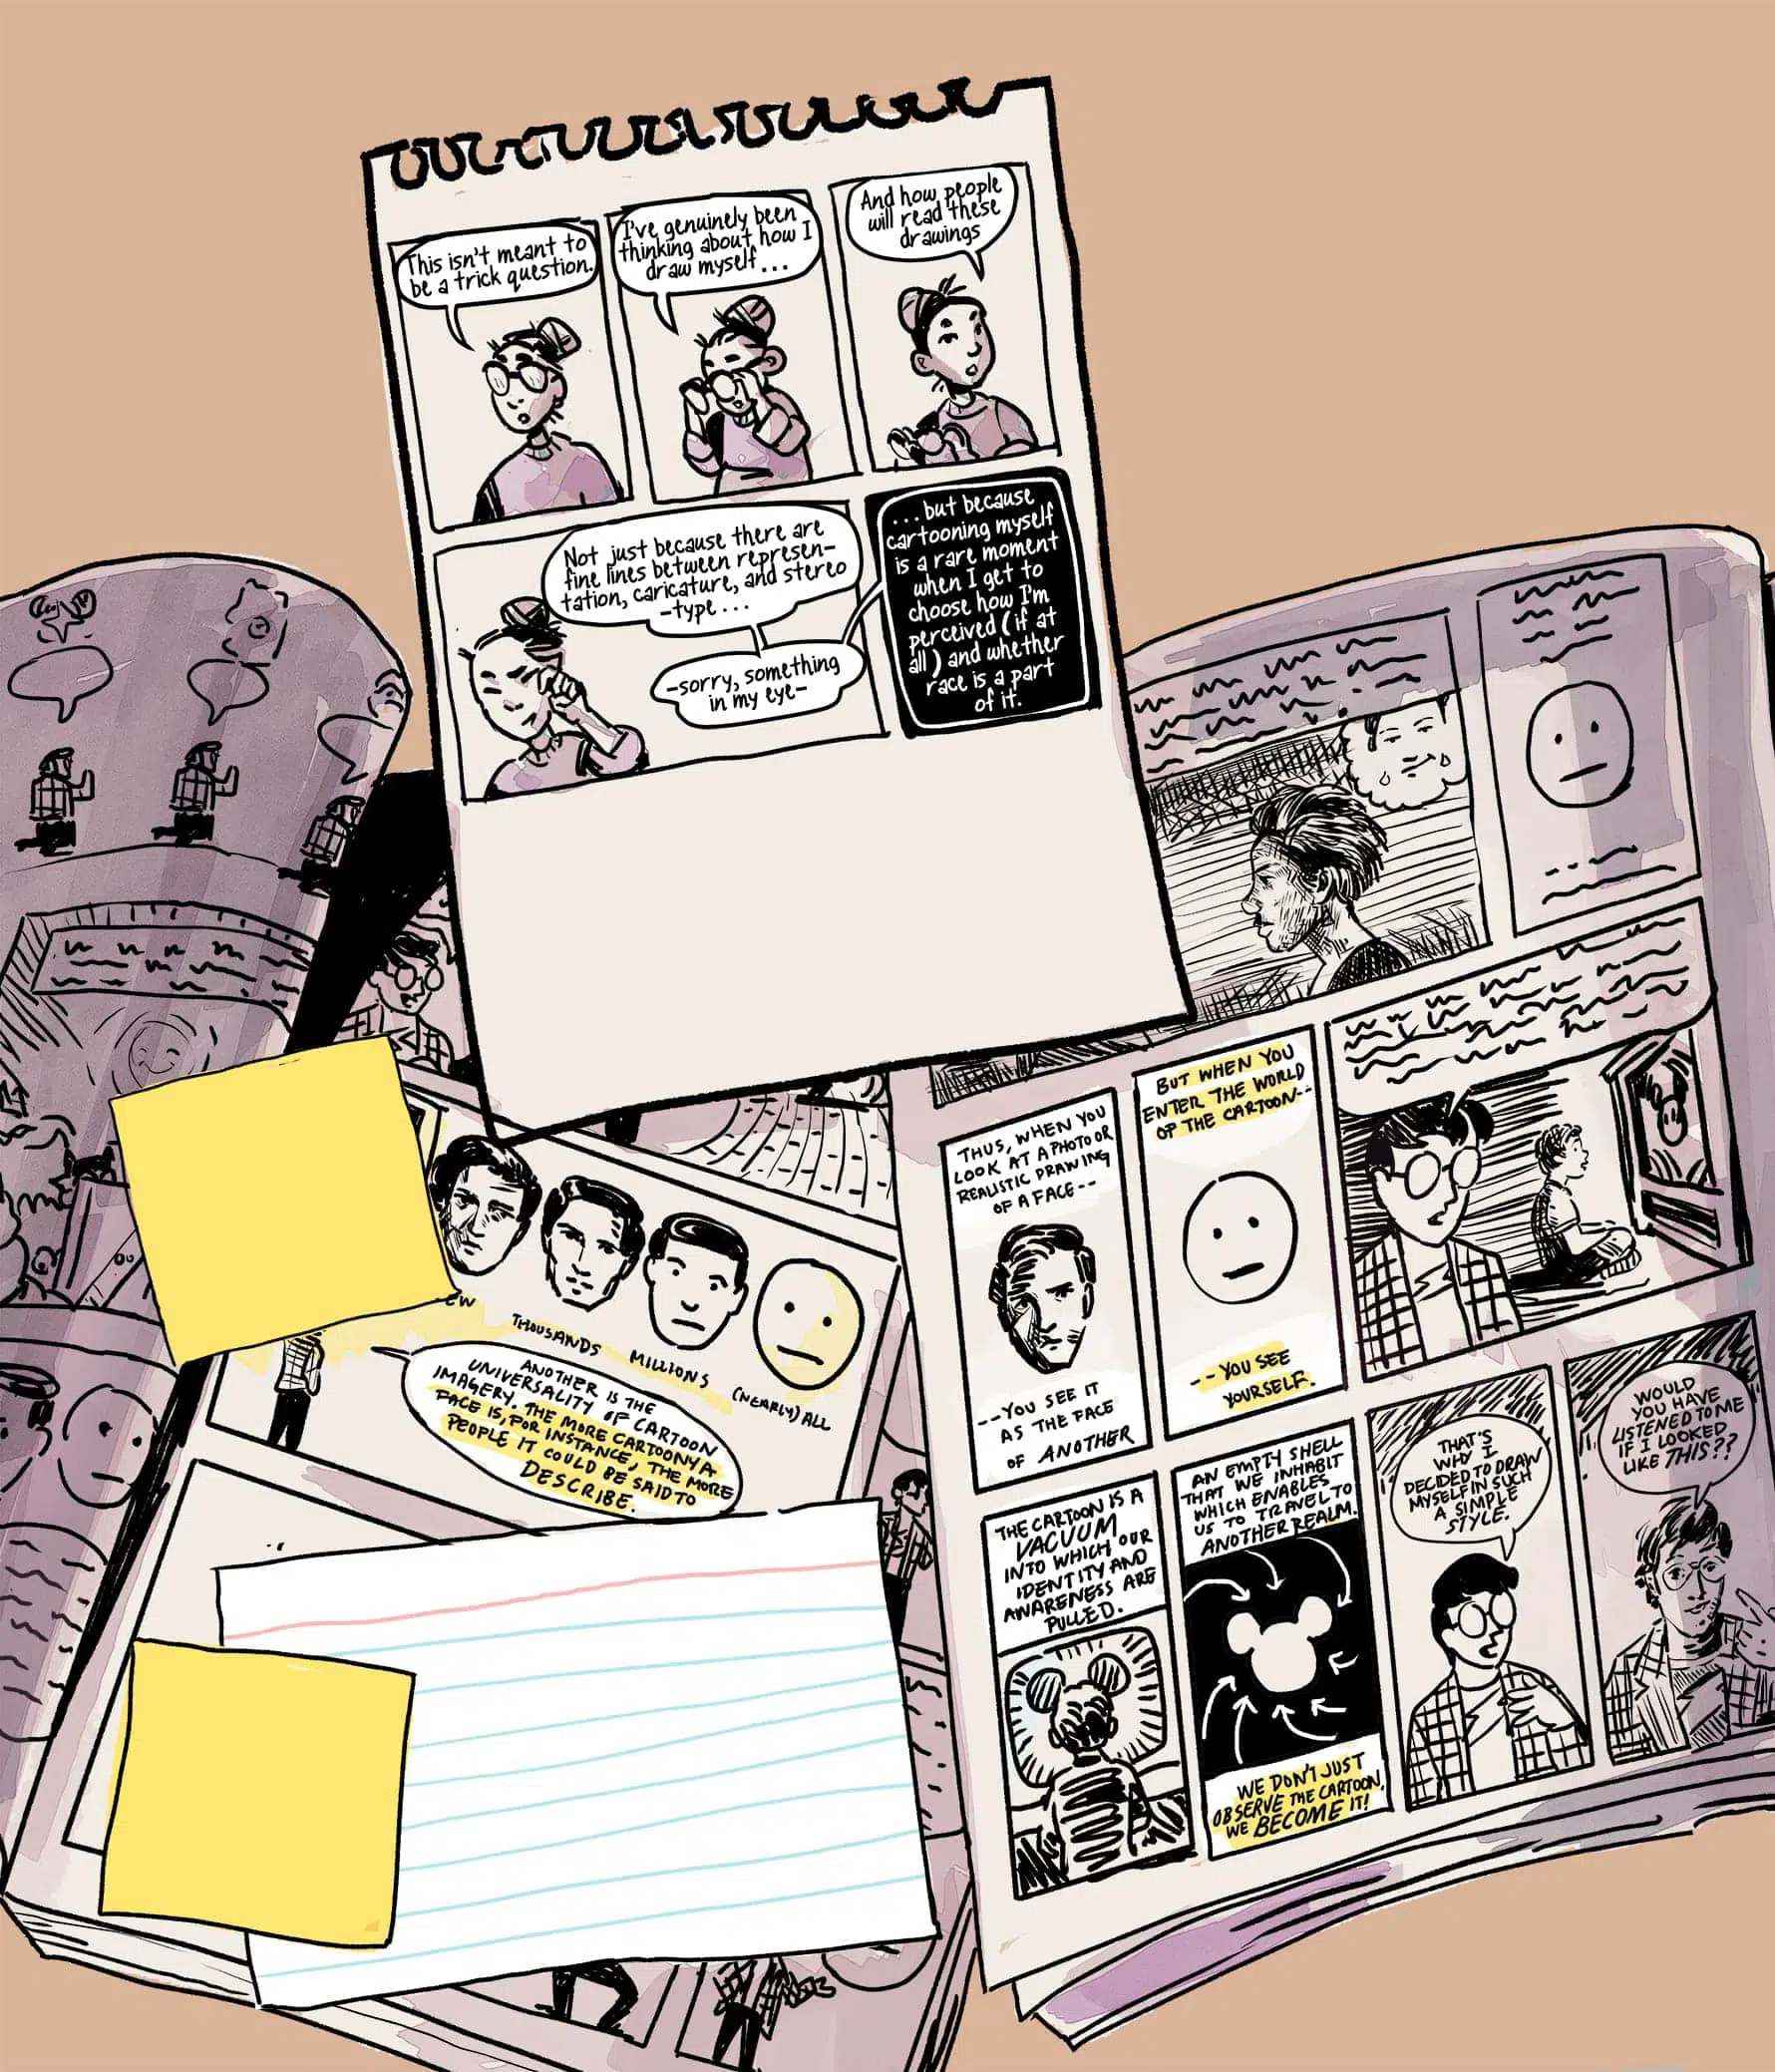 This isn't meant to
be a trick question.
I've genuinely been
thinking about how I
draw myself...
And how people
will read these
drawings
Not just because there are
fine lines between represen-
tation, caricature, and stereo
-type...
-sorry, something
in my eye-
...but because
cartooning myself
is a rare moment
when I get to
choose how I'm
perceived (if at
all) and whether
race is a part
of it.
THOUSANDS
MILLIONS
(NEARLY) ALL
ANOTHER IS THE
UNIVERSALITY OF CARTOON
IMAGERY. THE MORE CARTOONY A
FACE IS, FOR INSTANCE, THE MORE
PEOPLE IT COULD BE SAID TO
DESCRIBE.
THUS, WHEN YOU
LOOK AT A PHOTO OR
REALISTIC DRAWING
OF A FACE--
--YOU SEE IT
AS THE FACE
OF ANOTHER
BUT WHEN YOU
ENTER THE WORLD
OF THE CARTOON--
--YOU SEE
YOURSELF.
THE CARTOON IS A
VACUUM
INTO WHICH OUR
IDENTITY AND
AWARENESS ARE
PULLED.
AN EMPTY SHELL
THAT WE INHABIT
WHICH ENABLES
US TO TRAVEL TO
ANOTHER REALM.
WE DON'T JUST
OBSERVE THE CARTOON,
WE BECOME IT!
THAT'S
WHY I
DECIDED TO DRAW
MYSELF IN SUCH
A SIMPLE
STYLE.
WOULD
YOU HAVE
LISTENED TO ME
IF I LOOKED
LIKE THIS??